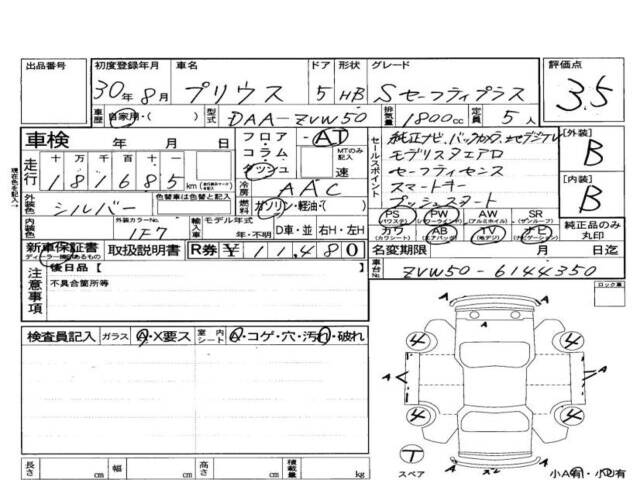 出品番号
初度登録年月 車名 ドア 形状 グレード 評価点
30年 8月 プリウス 5 HB Sセーフティプラス 3.5
車歴 自家用・( ) 型式 DAA-ZVW50 排気量 1800cc 定員 5人
車検 年 月 日
フロア・コラム・ダッシュ AT MTのみ記入 速
セールスポイント
純正ナビ、バックカメラ、
モデリスタエアロ
セーフティセンス
スマートキー
プッシュスタート
[外装] B
[内装] B
走行 十 万 千 百 十 一
181685 km
冷房 AAC
現在色を記入→
外装色 シルバー 色替車は色替と記入
燃料 ガソリン・軽油・( )
内装色 外装カラーNo. 1F7
輸入車 モデル年式 年・不明 D車・並 右H・左H
PS (パワステ) PW (パワーウインドウ) AW (アルミホイル) SR (サンルーフ)
カワ (カワシート) AB (エアバッグ) TV (地デジ) ナビ (ナビゲーション)
純正品のみ丸印
新車保証書 取扱説明書 R券 ¥11,480
名変期限 月 日迄
車台No. ZVW50-6144350
注意事項
後日品【 】
不具合箇所等
ロック車
検査員記入 ガラス A・X要ス 室内シート A・コゲ・穴・汚れ・破れ
A A
4 4
A A
4 4
T
スペア
小A有・小U有
長さ cm 幅 cm 高さ cm 積載量 kg